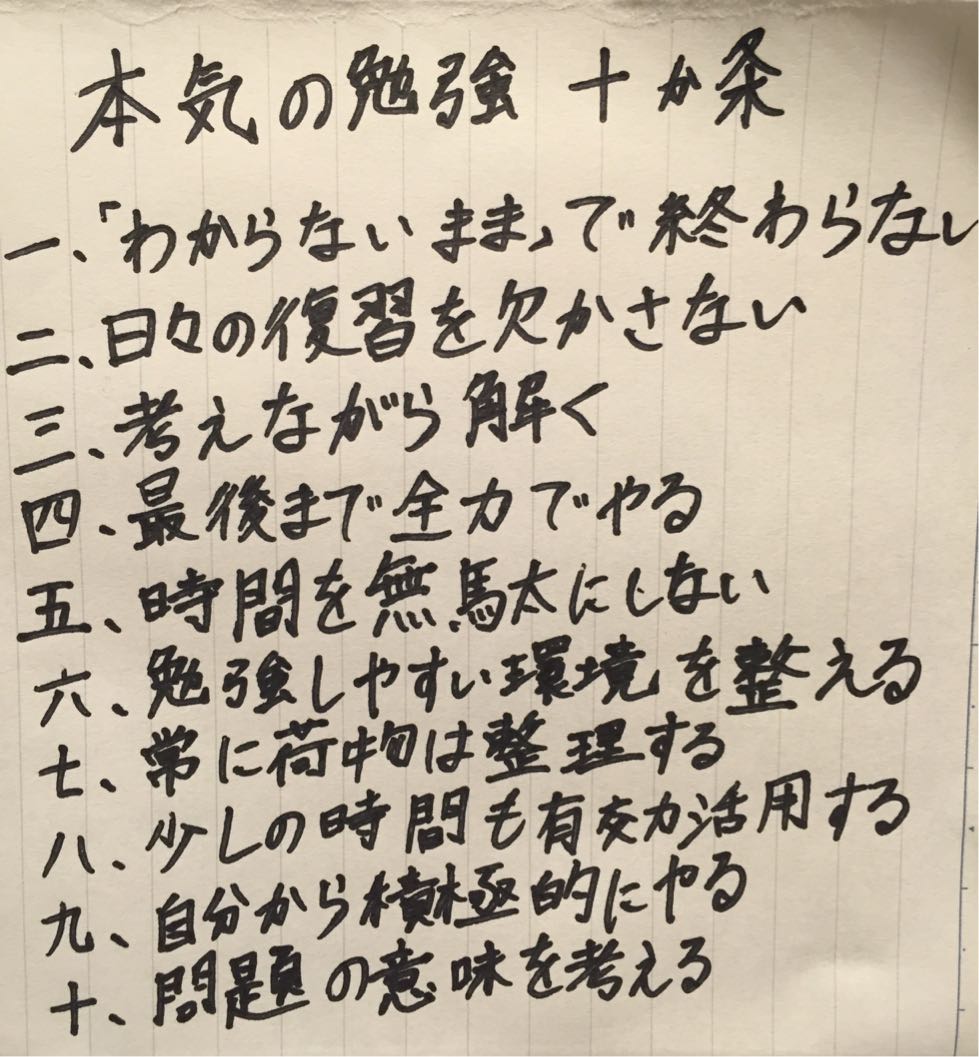 本気の勉強 十か条
一、「わからないまま」で終わらない
二、日々の復習を欠かさない
三、考えながら解く
四、最後まで全力でやる
五、時間を無馬太にしない
六、勉強しやすい環境を整える
七、常に荷物は整理する
八、少しの時間も有効活用する
九、自分から積極的にやる
十、問題の意味を考える